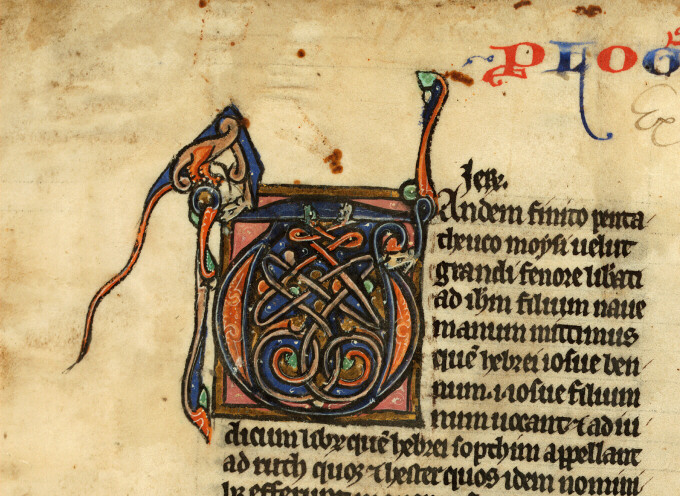 PLOG
Ex
Jere.
TAndem finito penta
theuco moysi uelut
grandi fenore libati
ad ihm filium naue
manum mittimus
quē hebrei iosue ben
num. i. iosue filium
num uocant ⁊ ad iu
dicum librū quē hebrei sopthim appellant
ad ruth quoqȝ ⁊ hester quos idem nomini